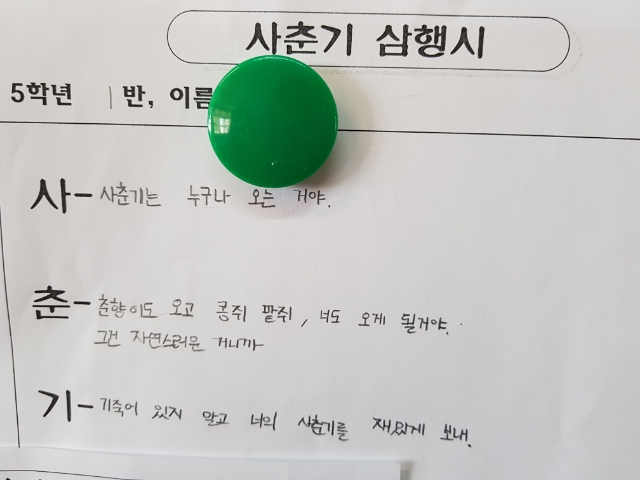 사춘기 삼행시
5학년 반, 이름
사- 사춘기는 누구나 오는 거야.
춘- 춘향이도 오고 콩쥐 팥쥐, 너도 오게 될거야.
그건 자연스러운 거니까
기- 기죽어 있지 말고 너의 사춘기를 재밌게 보내.